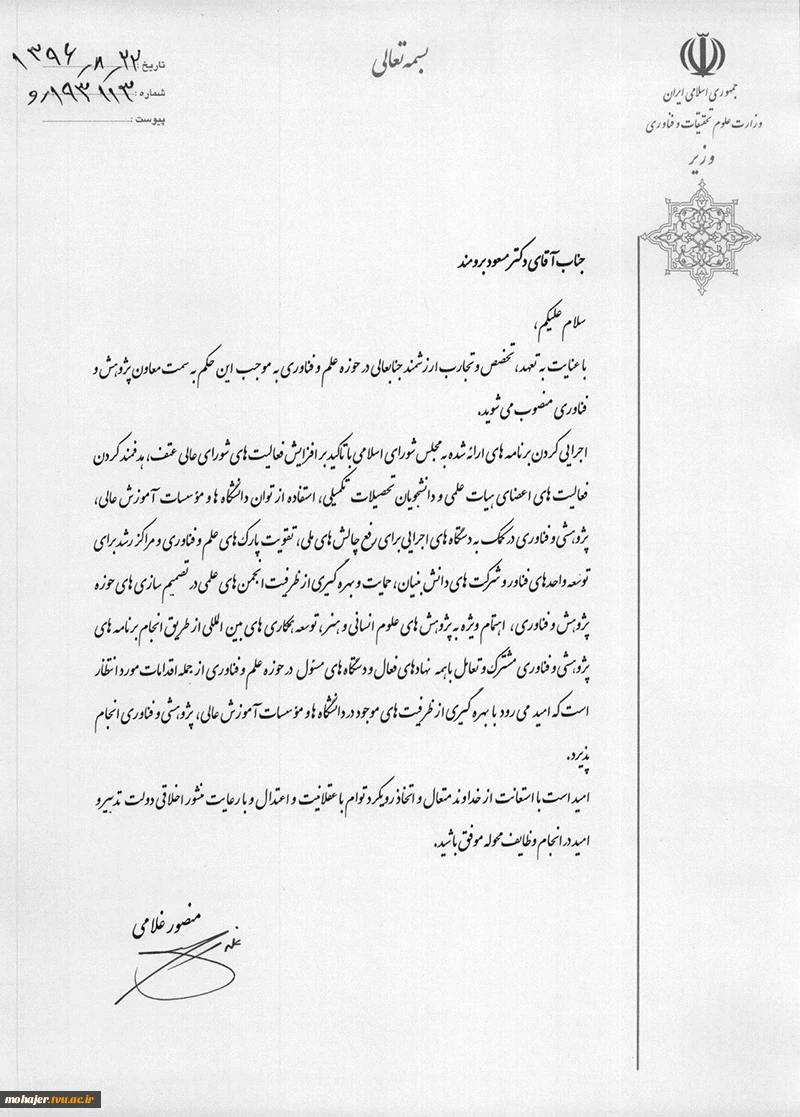 بسمه تعالی
جمهوری اسلامی ایران
وزارت علوم تحقیقات و فناوری
وزیر
تاریخ: ۱۳۹۶٫۸٫۲۲
شماره:
پیوست:
جناب آقای دکتر مسعود برومند
سلام علیکم،
با عنایت به تعهد، تخصص و تجارب ارزشمند جنابعالی در حوزه علم و فناوری به موجب این حکم به سمت معاون پژوهش و
فناوری منصوب می شوید.
اجرایی کردن برنامه های ارائه شده به مجلس شورای اسلامی با تاکید بر افزایش فعالیت های شورای عالی عتف، هدفمند کردن
فعالیت های اعضای هیات علمی و دانشجویان تحصیلات تکمیلی، استفاده از توان دانشگاه ها و مؤسسات آموزش عالی،
پژوهشی و فناوری در کمک به دستگاه های اجرایی برای رفع چالش های ملی، تقویت پارک های علم و فناوری و مراکز رشد برای
توسعه واحدهای فناور و شرکت های دانش بنیان، حمایت و بهره گیری از ظرفیت انجمن های علمی در تصمیم سازی های حوزه
پژوهش و فناوری، اهتمام ویژه به پژوهش های علوم انسانی و هنر، توسعه همکاری های بین المللی از طریق انجام برنامه های
پژوهشی و فناوری مشترک و تعامل با همه نهادهای فعال و دستگاه های مسئول در حوزه علم و فناوری از جمله اقدامات مورد انتظار
است که امید می رود با بهره گیری از ظرفیت های موجود در دانشگاه ها و مؤسسات آموزش عالی، پژوهشی و فناوری انجام
پذیرد.
امید است با استعانت از خداوند متعال و اتخاذ رویکرد توام با عقلانیت و اعتدال و با رعایت منشور اخلاقی دولت تدبیر و
امید در انجام وظایف محوله موفق باشید.
منصور غلامی
mohajer.tvu.ac.ir